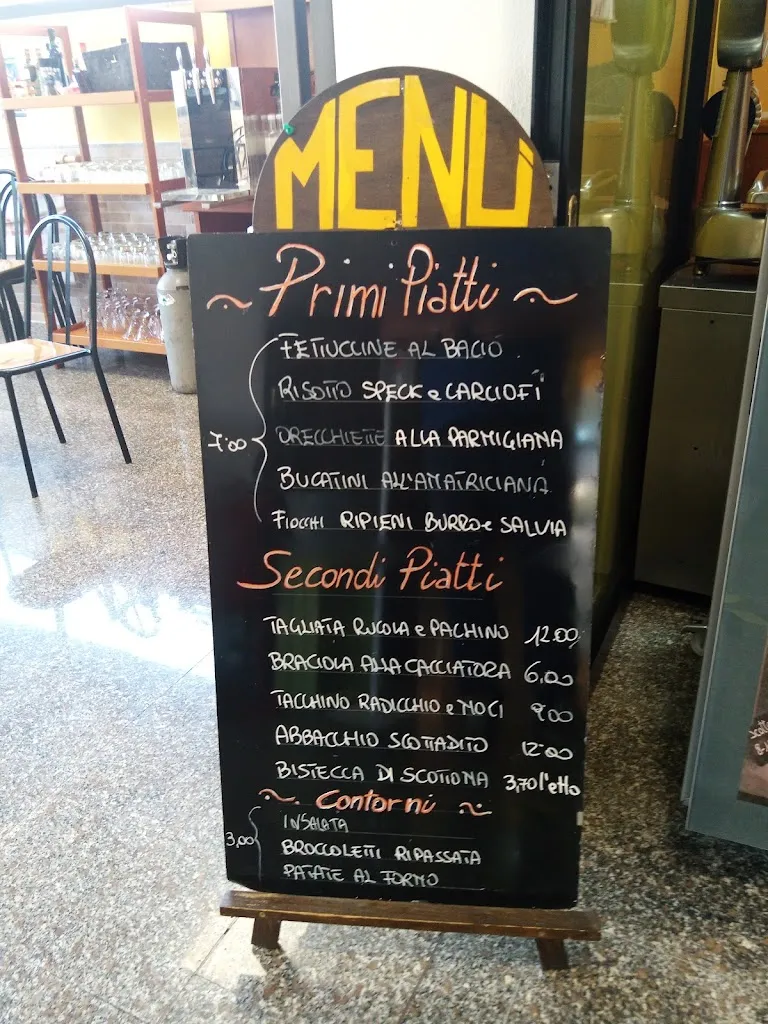 MENÙ
~ Primi Piatti ~
FETTUCCINE AL BACIO
RISOTTO SPECK e CARCIOFI
7,00 ORECCHIETTE ALLA PARMIGIANA
BUCATINI ALL'AMATRICIANA
FIOCCHI RIPIENI BURRO e SALVIA
Secondi Piatti
TAGLIATA RUCOLA e PACHINO 12.00
BRACIOLA ALLA CACCIATORA 6,00
TACCHINO RADICCHIO e NOCI 9,00
ABBACCHIO SCOTTADITO 12,00
BISTECCA DI SCOTTONA 3,70 l'etto
~ Contorni ~
INSALATA
3,00 BROCCOLETTI RIPASSATA
PATATE AL FORNO